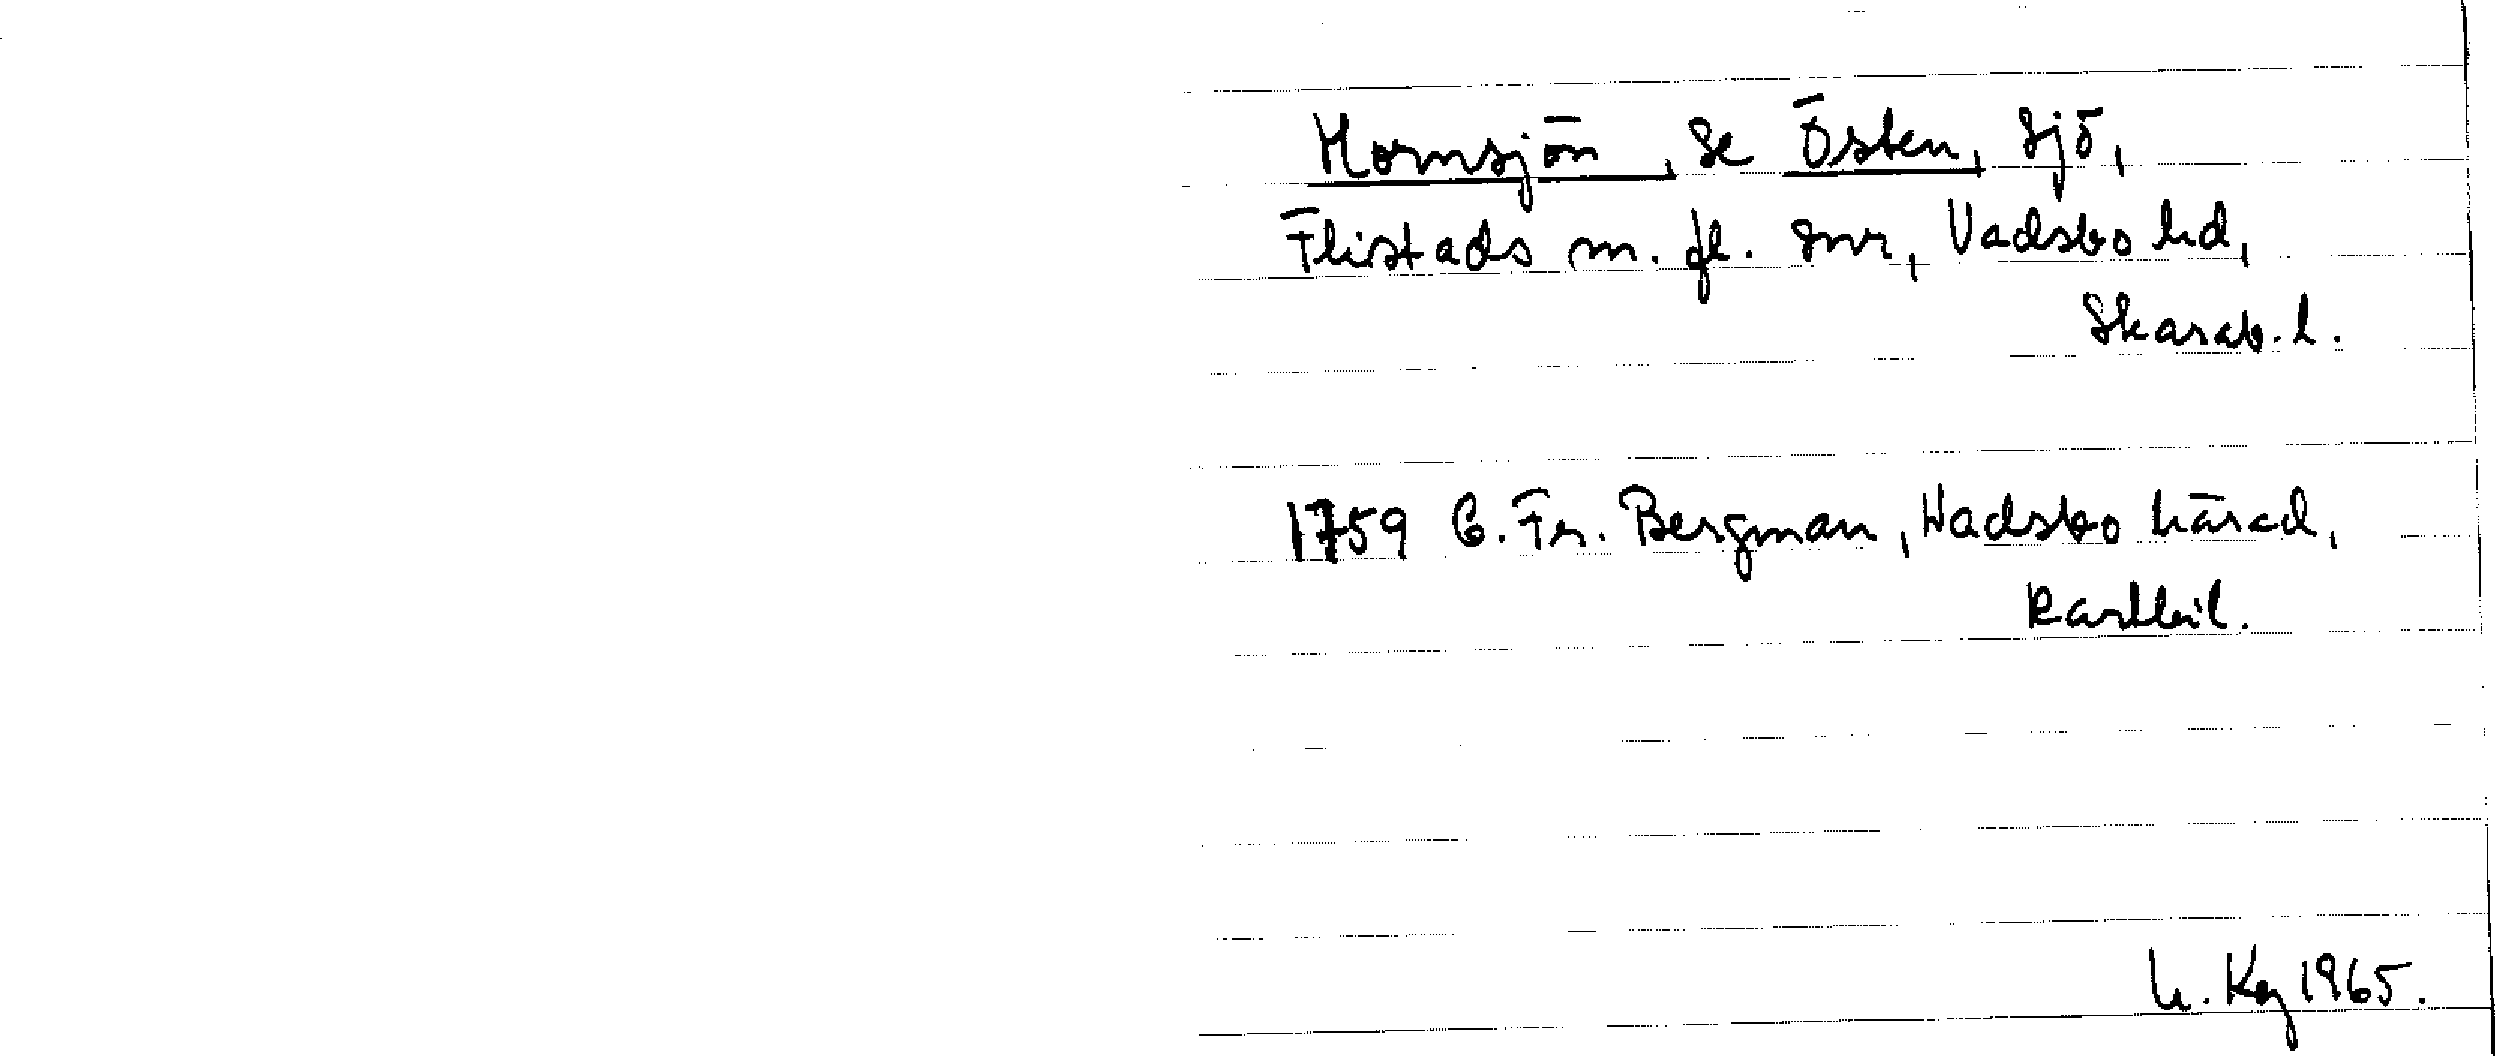 Hornsjön, se Östen, sjö,
Flistads m. fl. snr, Vadsbo hd,
Skarab. l.
1759 C. Fr. Bergman, Wadsbo härad,
Kartbil.
U. Kg 1965.